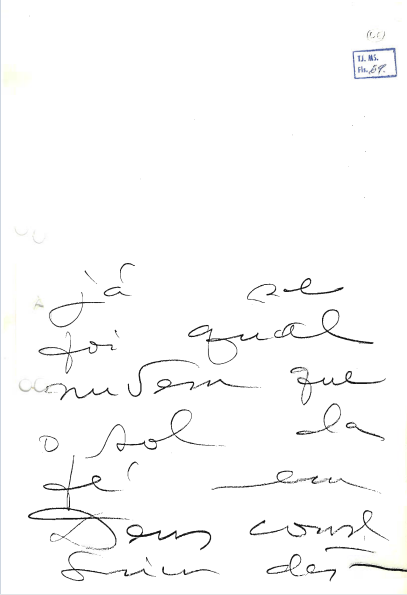 (66)
T.J. MS.
Fls. 69.
já se
foi qual
nuvem que
o sol da
fé em
Deus conse
guiu des-